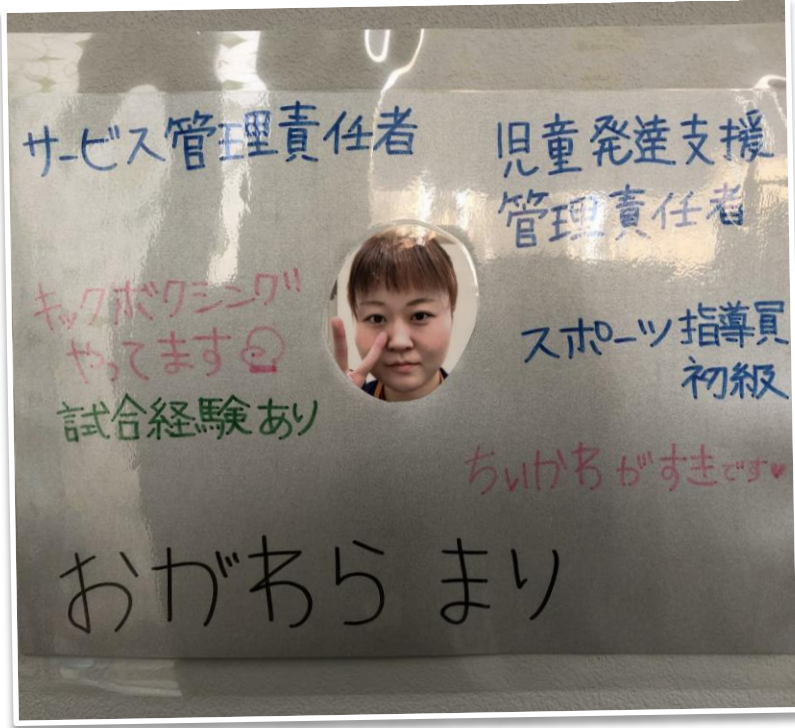 サービス管理責任者
児童発達支援
管理責任者
キックボクシング
やってます
試合経験あり
スポーツ指導員
初級
ちいかわがすきです♥
おがわら まり